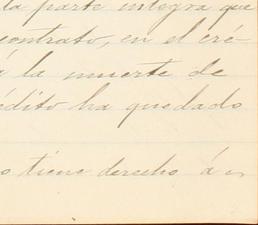 la parte integra que
contrato, en el cré-
á la muerte de
édito ha quedado
o tiene derecho á